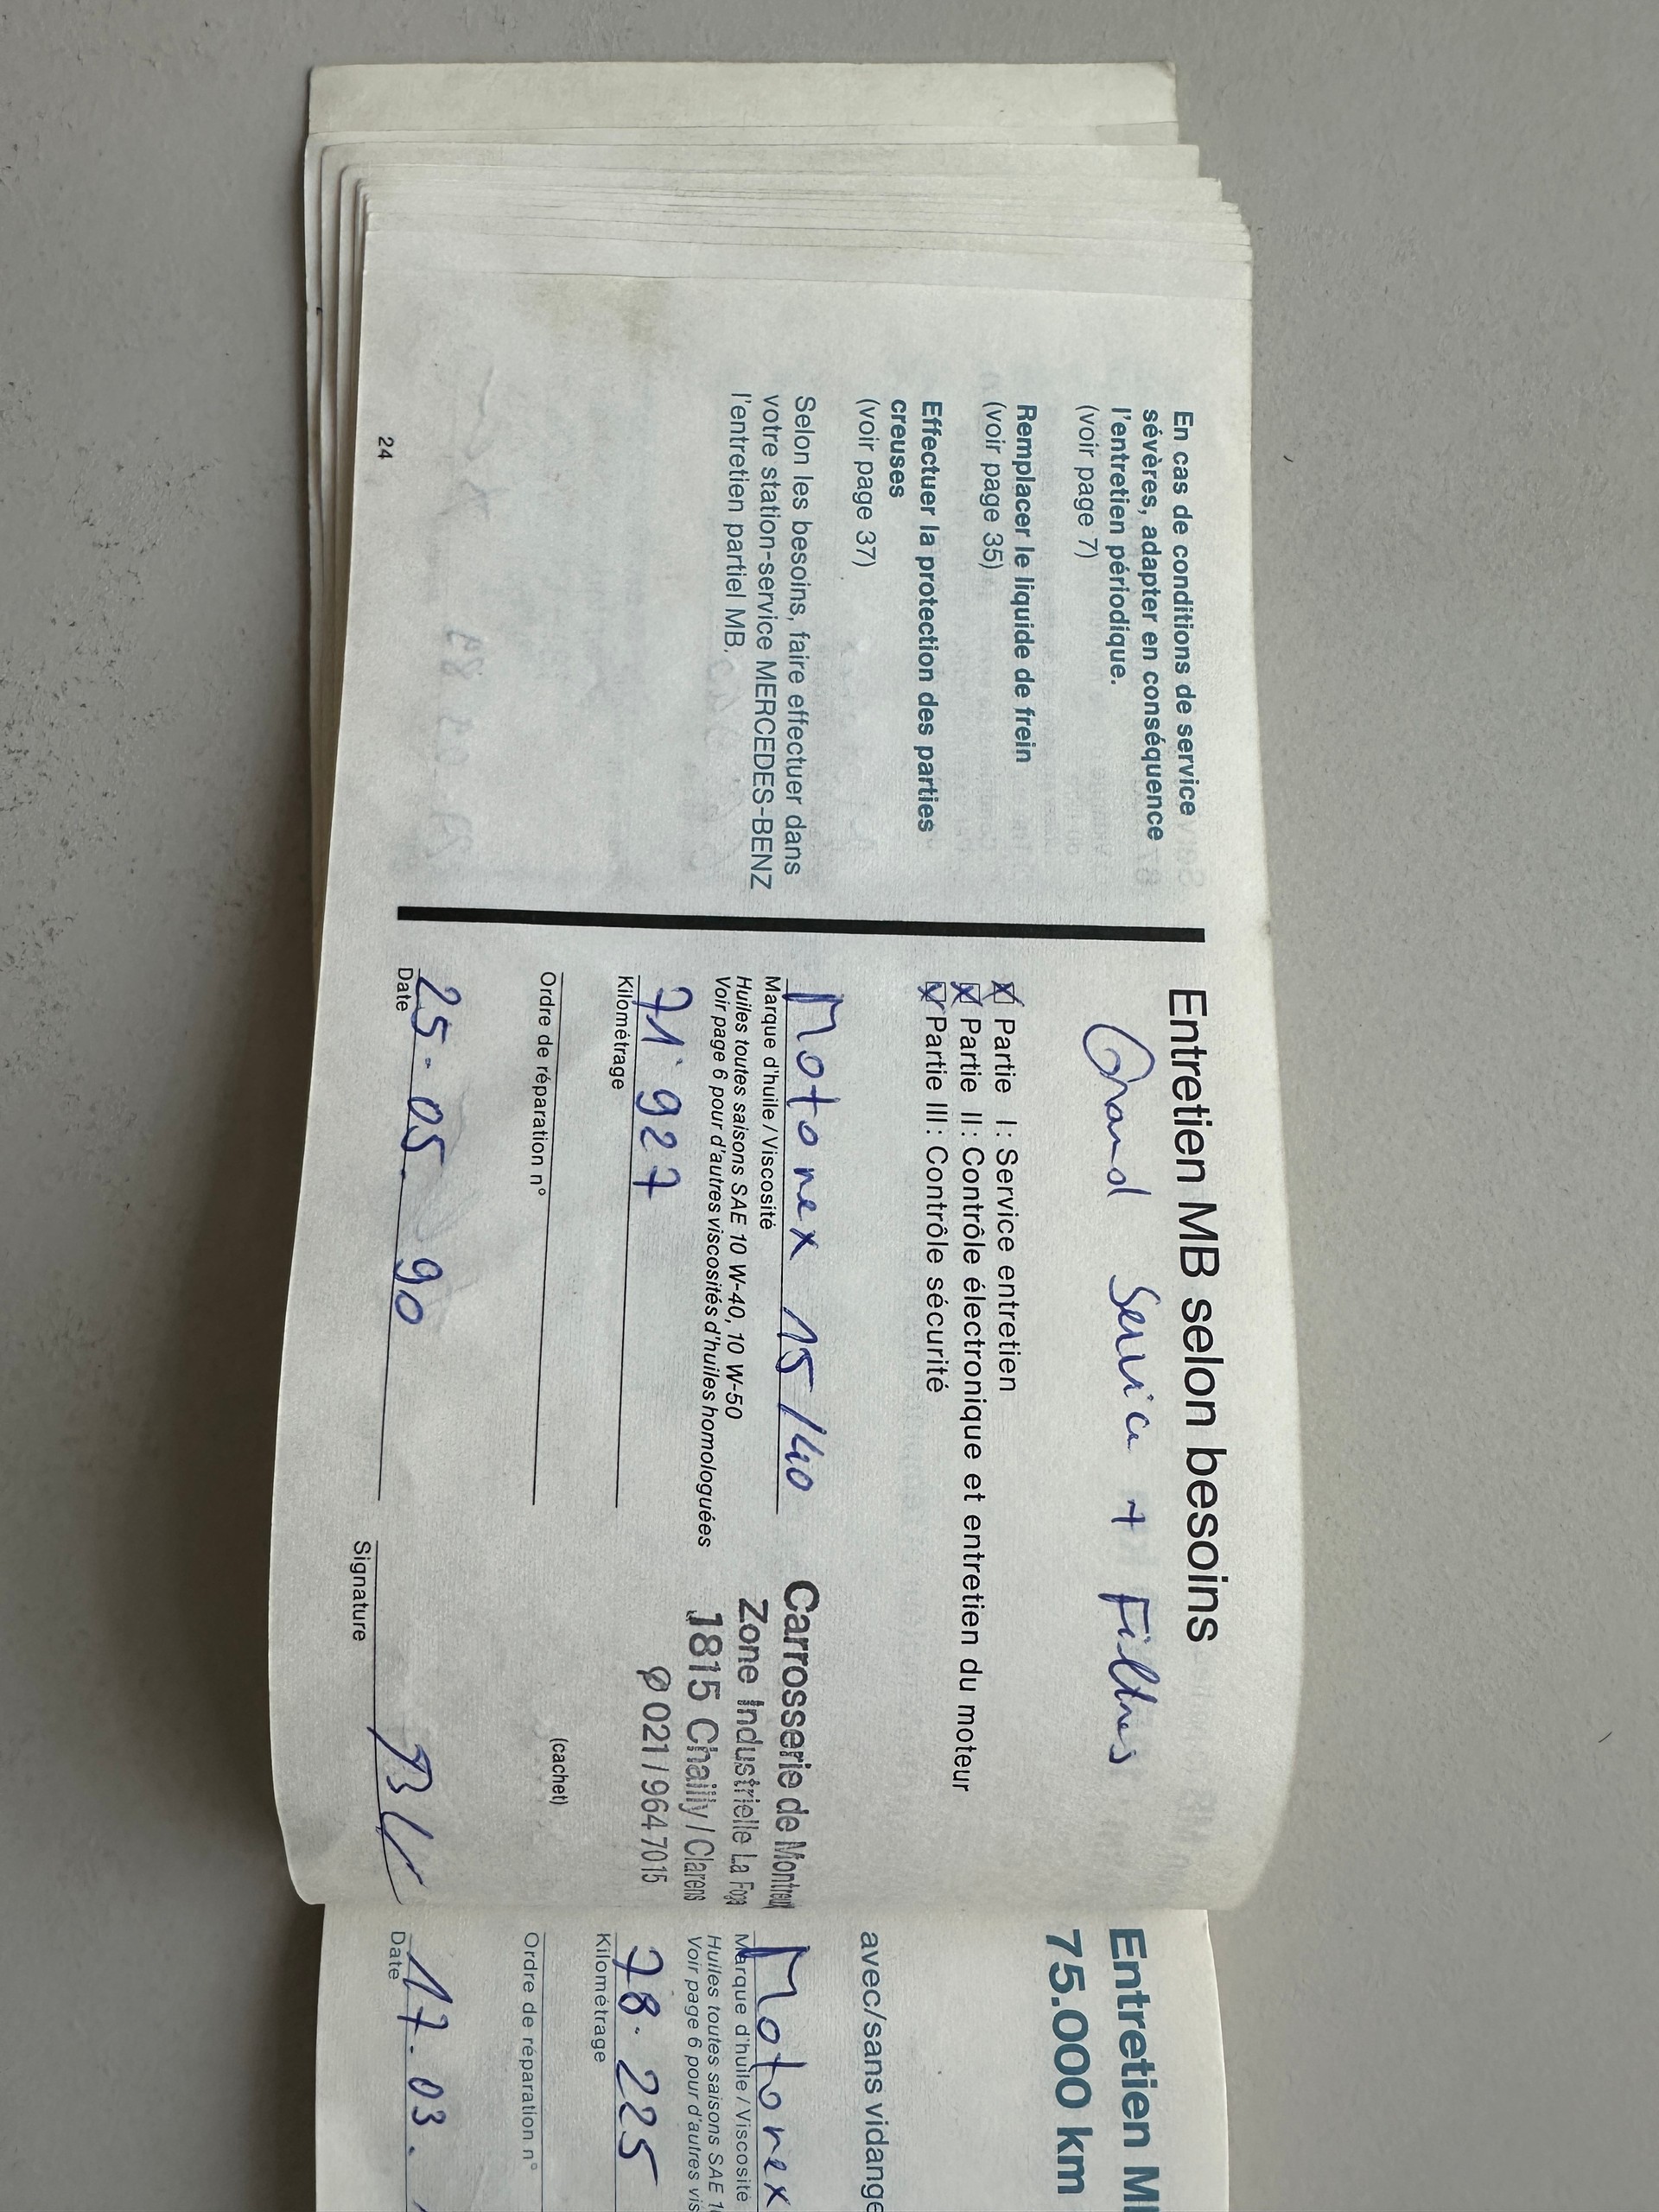 En cas de conditions de service
sévères, adapter en conséquence
l'entretien périodique.
(voir page 7)
Remplacer le liquide de frein
(voir page 35)
Effectuer la protection des parties
creuses
(voir page 37)
Selon les besoins, faire effectuer dans
votre station-service MERCEDES-BENZ
l'entretien partiel MB.
24
Entretien MB selon besoins
Grand Service + Filtres
Partie I: Service entretien
Partie II: Contrôle électronique et entretien du moteur
Partie III: Contrôle sécurité
Motorex 15/40
Marque d'huile/Viscosité
Huiles toutes saisons SAE 10 W-40, 10 W-50
Voir page 6 pour d'autres viscosités d'huiles homologuées
71'927
Kilométrage
Ordre de réparation n°
25.05.90
Date
Carrosserie de Montreux
Zone Industrielle La Foge
1815 Chailly / Clarens
021 / 964 70 15
(cachet)
Signature
Entretien M
75.000 km
avec/sans vidange
Motorex
Marque d'huile/Viscosité
Huiles toutes saisons SAE 1
Voir page 6 pour d'autres vis
78.225
Kilométrage
Ordre de réparation n°
17.03.
Date